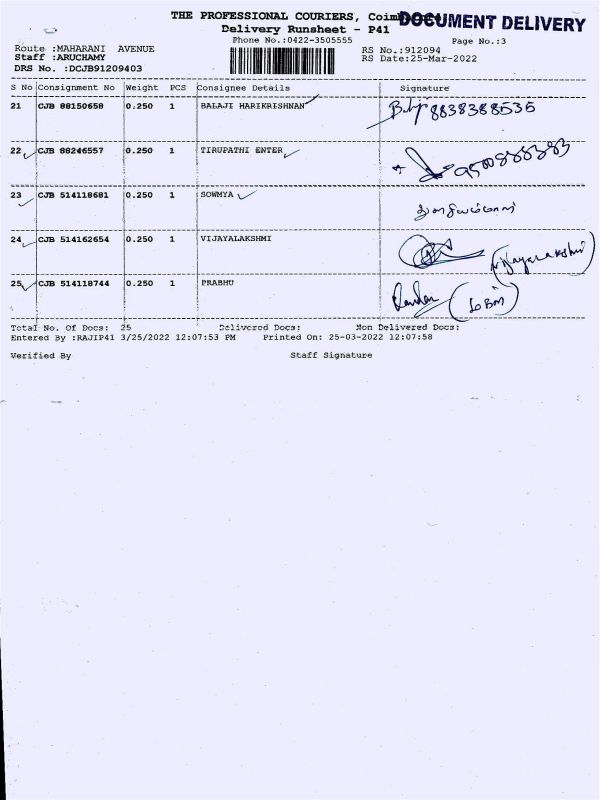 THE PROFESSIONAL COURIERS,
DOCUMENT DELIVERY
Delivery Runsheet - P41
Phone No.:0422-3505555
Page No.:3
Route :MAHARANI AVENUE
RS No.:912094
Staff :ARUCHAMY
RS Date:25-Mar-2022
DRS No. :DCJB91209403
S No Consignment No Weight PCS Consignee Details Signature
21 CJB 88150658 0.250 1 BALAJI HARIKRISHNAN 8838388535
22 CJB 88246557 0.250 1 TIRUPATHI ENTER
23 CJB 514118681 0.250 1 SOWMYA
24 CJB 514162654 0.250 1 VIJAYALAKSHMI
25 CJB 514118744 0.250 1 PRABHU
Total No. Of Docs: 25 Delivered Docs: Non Delivered Docs:
Entered By :RAJIP41 3/25/2022 12:07:53 PM Printed On: 25-03-2022 12:07:58
Verified By Staff Signature